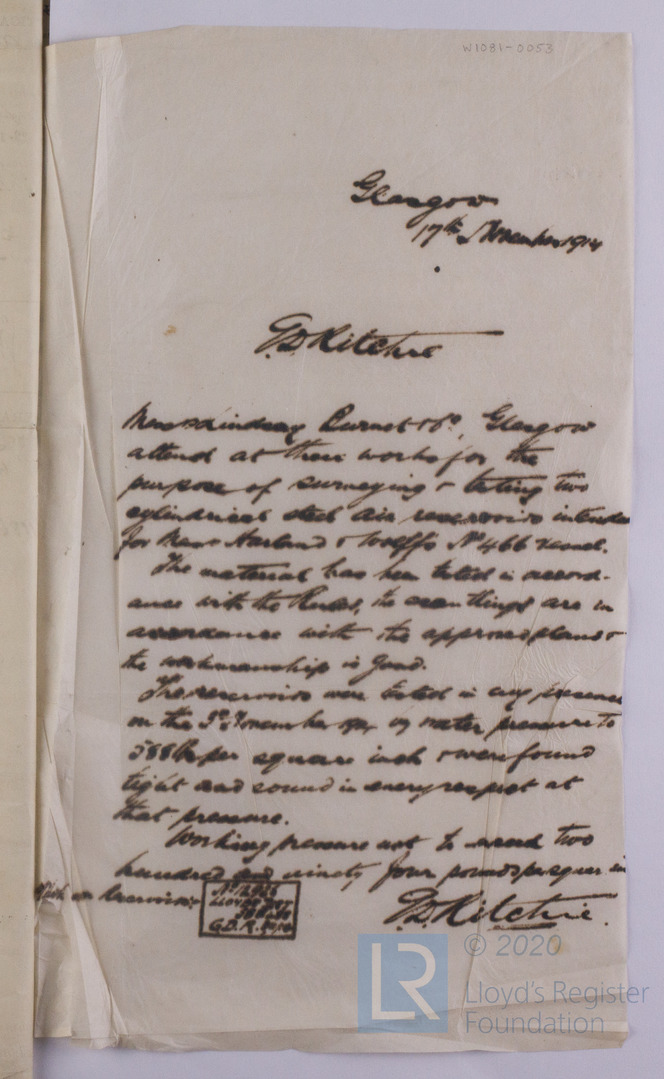 W1081-0053
Glasgow
17th November 1914
G.D. Ritchie
Messrs Lindsay Burnet & Co, Glasgow
attend at their works for the
purpose of surveying & testing two
cylindrical steel air reservoirs intended
for Messrs Harland & Wolffs No 466 vessel.
The material has been tested in accord-
ance with the Rules, the scantlings are in
accordance with the approved plans &
the workmanship is good.
The reservoirs were tested in my presence
on the 3rd November 1914 by water pressure to
588 lbs per square inch & were found
tight and sound in every respect at
that pressure.
Working pressure not to exceed two
hundred and ninety four pounds per square in
on Reservoirs:-
No
Lloyds Test
588 lbs
G.D.R.
G.D. Ritchie.
LR
© 2020
Lloyd's Register
Foundation